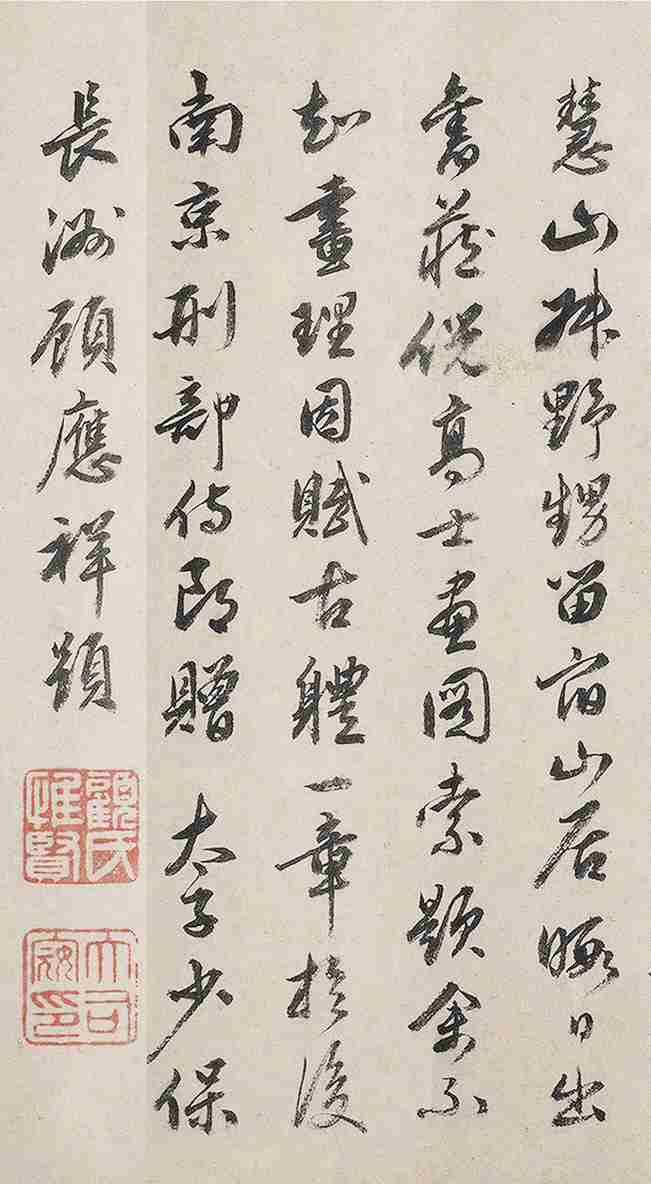 慧山野甥留宿山居晦日出
舊藏倪高士畫圖索題余不
知畫理因賦古體一章於後
南京刑部侍郎贈 太子少保
長洲顧應祥題
顧氏惟賢
大司寇印